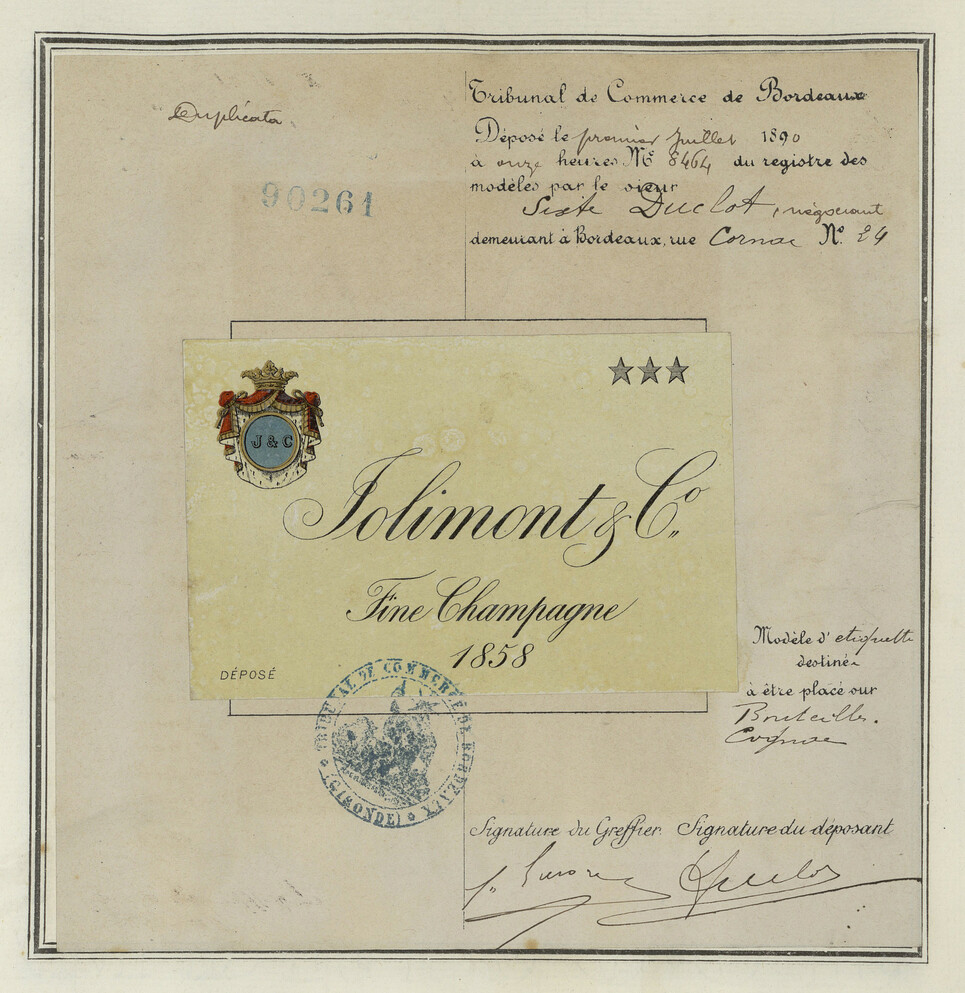 Duplicata
90261
Tribunal de Commerce de Bordeaux
Déposé le premier Juillet 1890
à onze heures No 8464 du registre des
modèles par le sieur
Sixte Duclot, négociant
demeurant à Bordeaux, rue Cornac No. 24
J & C
Jolimont & Co
Fine Champagne
1858
DÉPOSÉ
TRIBUNAL DE COMMERCE DE BORDEAUX
(GIRONDE)
Modèle d'etiquette
destinée
à être placé sur
Bouteilles.
Cognac
Signature du Greffier Signature du déposant
Duclot